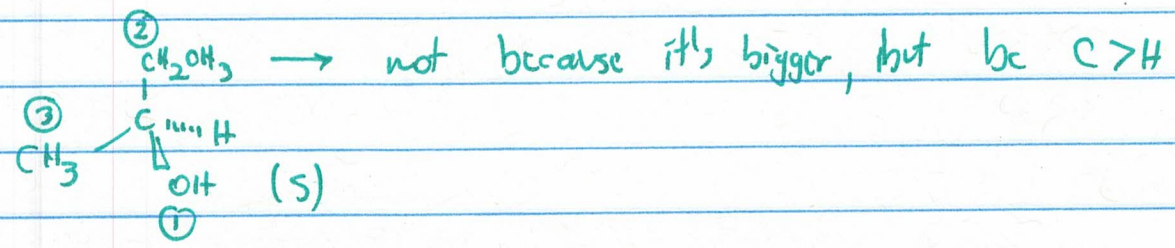 ②
CH₂OH₃ → not because it's bigger, but bc C>H
③
C H
CH₃
OH (S)
①